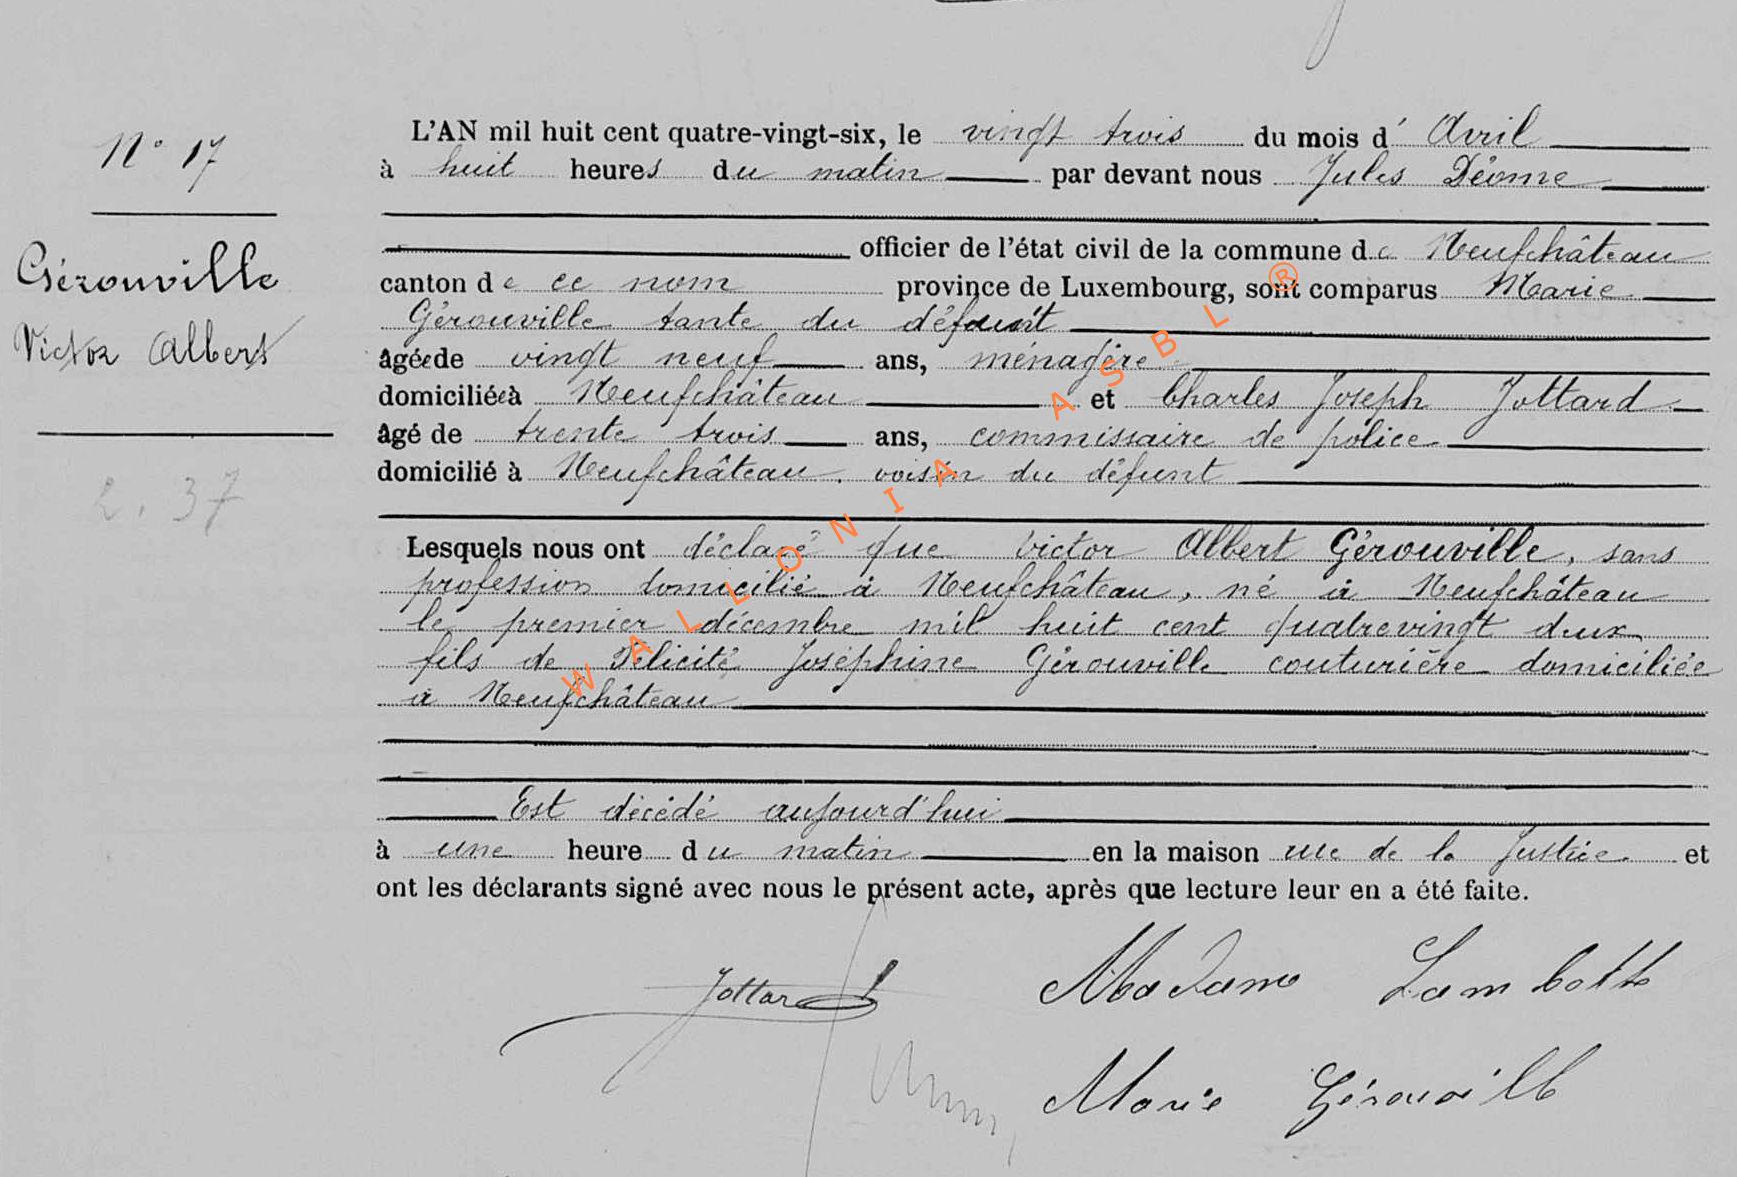 N° 17
Gérouville
Victor Albert
2.37
L'AN mil huit cent quatre-vingt-six, le vingt trois du mois d' Avril
à huit heures du matin par devant nous Jules Déome
officier de l'état civil de la commune de Neufchâteau
canton de ce nom province de Luxembourg, sont comparus Marie
Gérouville tante du défunt
âgée de vingt neuf ans, ménagère
domiciliée à Neufchâteau et Charles Joseph Jottard
âgé de trente trois ans, commissaire de police
domicilié à Neufchâteau, voisin du défunt
Lesquels nous ont déclaré que Victor Albert Gérouville, sans
profession domicilié à Neufchâteau, né à Neufchâteau
le premier décembre mil huit cent quatrevingt deux
fils de Félicité Joséphine Gérouville couturière domiciliée
à Neufchâteau
Est décédé aujourd'hui
à une heure du matin en la maison rue de la Justice et
ont les déclarants signé avec nous le présent acte, après que lecture leur en a été faite.
Jottard
Madame Lambotte
Marie Gérouville
WALLONIA ASBL ®